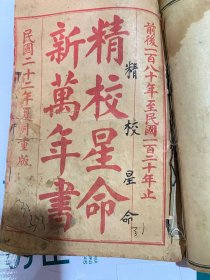 前後二百八十年至民國一百二十年止
精校星命
新萬年書
民國二十二年
重版
精校星命